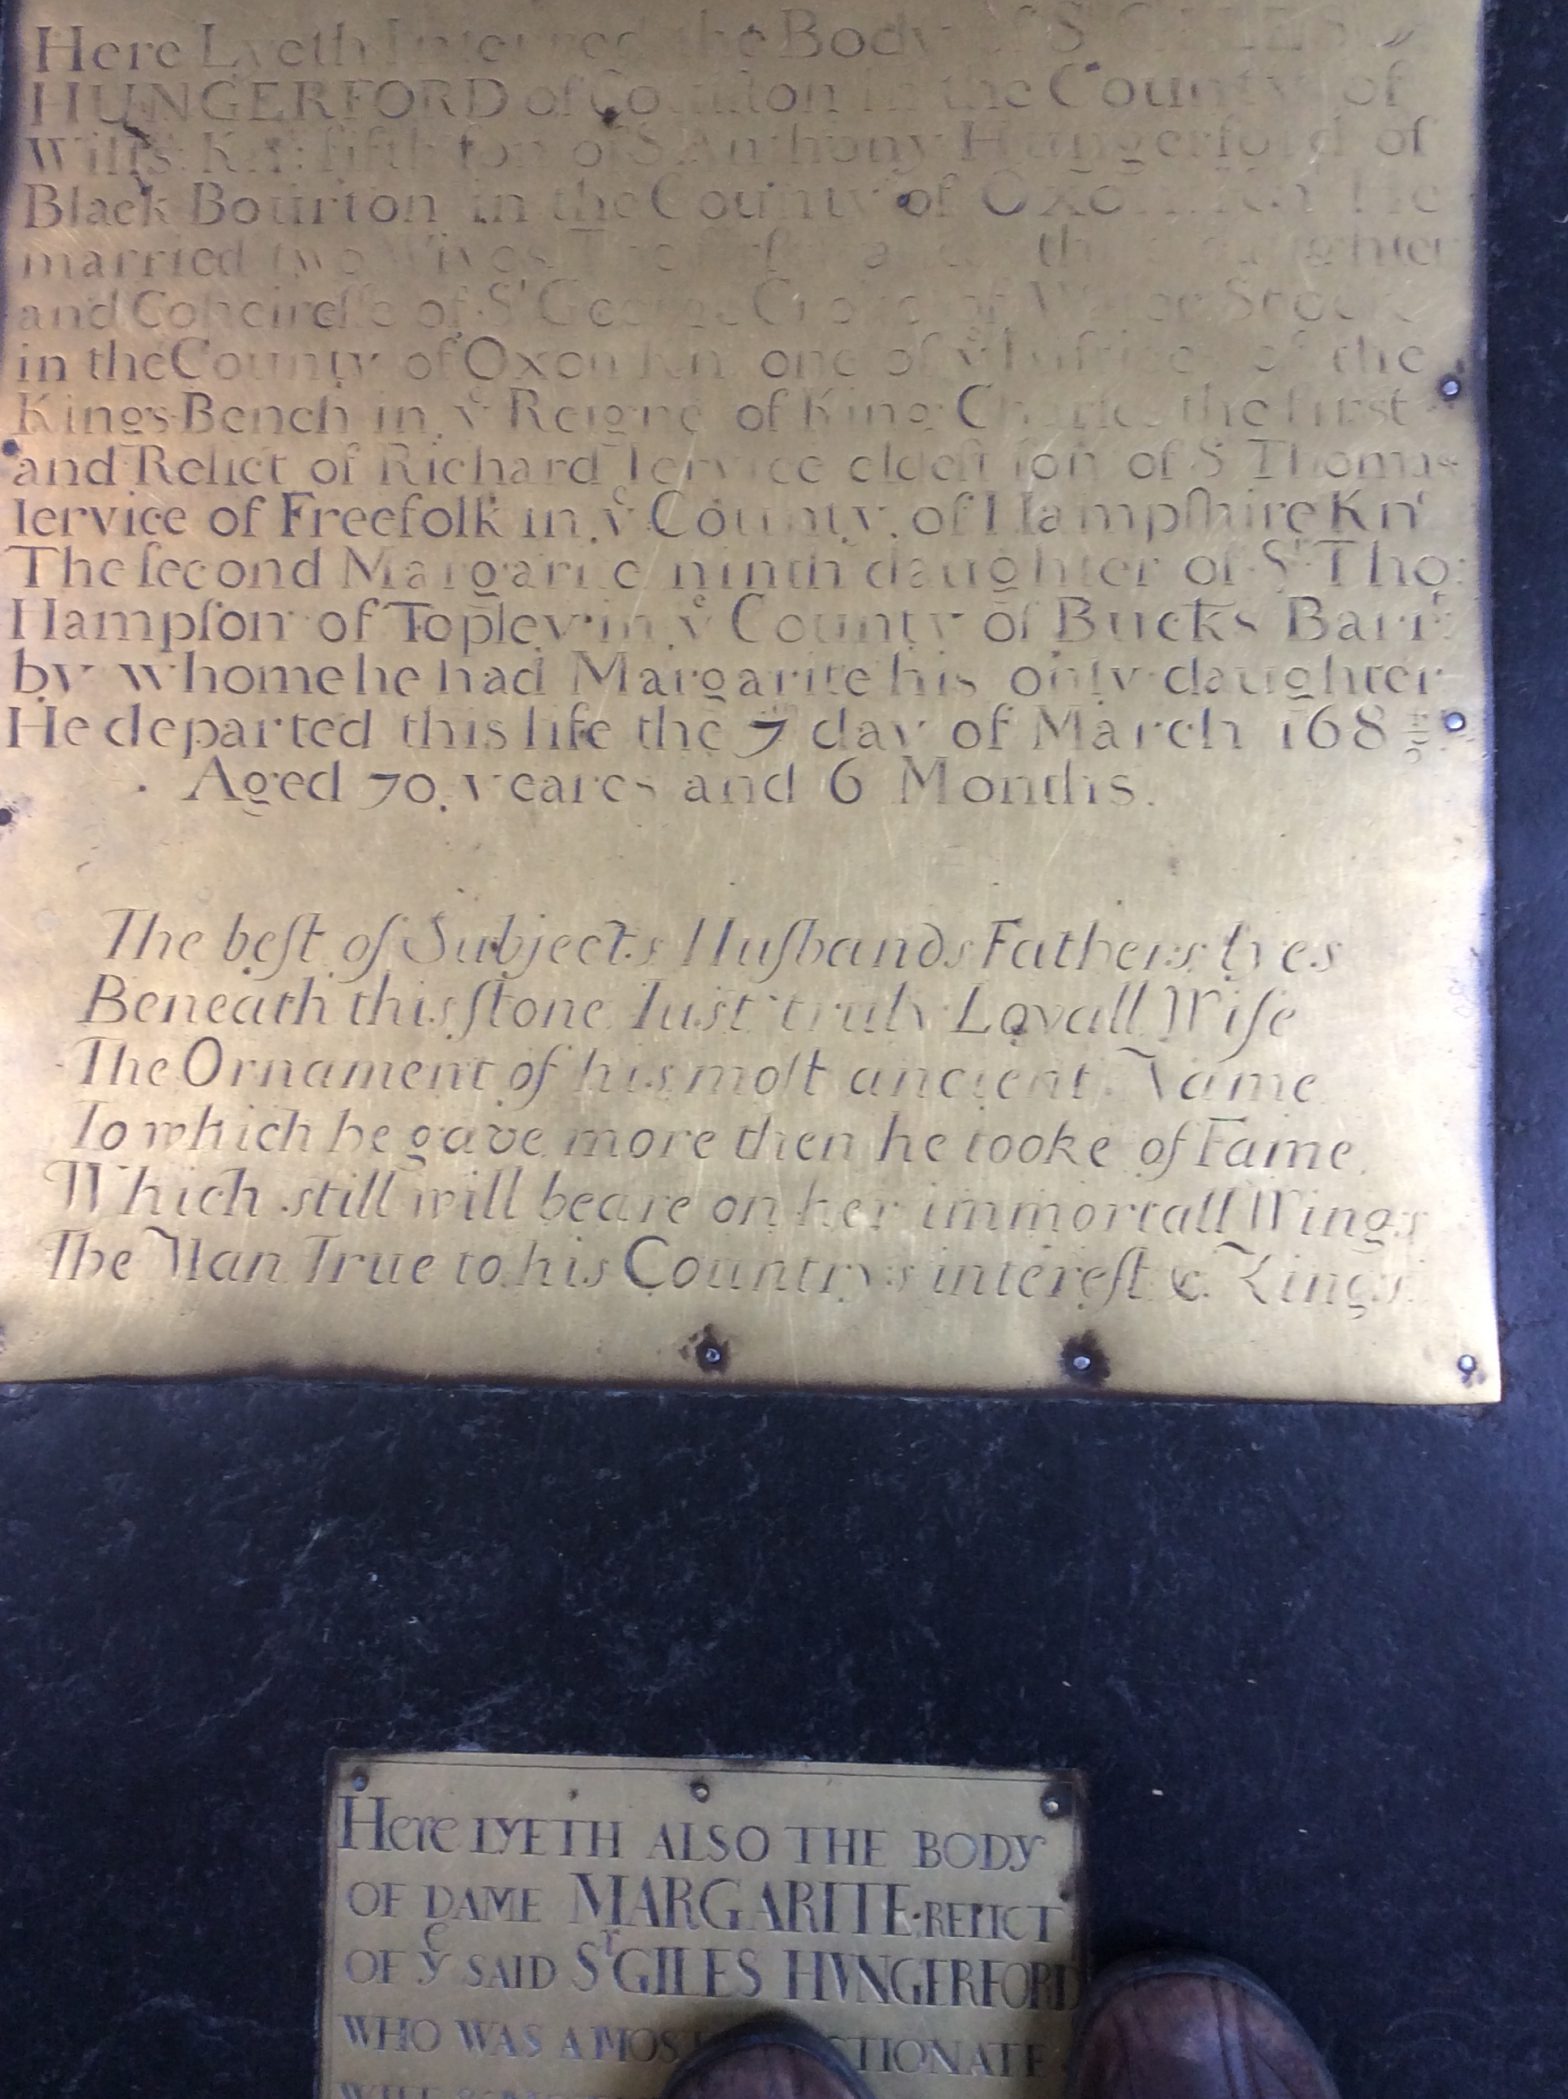 Here Lyeth Interred the Body of Sr GILES
HUNGERFORD of Coulston in the County of
Wilts: Knt: fifth ſon of Sr Anthony Hungerford of
Black Bourton in the County of Oxon Knt He
married two Wives The firſt daughter
and Coheireſſe of Sr George Croke of Water Stocke
in the County of Oxon Knt one of ye Iuſtices of the
Kings Bench in ye Reigne of King Charles the first
and Relict of Richard Iervice eldeſt ſon of Sr Thomas
Iervice of Freefolk in ye County of Hampſhire Knt
The ſecond Margarite ninth daughter of Sr Tho:
Hampſon of Topley in ye County of Bucks Barrt:
by whome he had Margarite his only daughter
He departed this life the 7th day of March 168 4/5
Aged 70 yeares and 6 Months.
The beſt of Subjects Huſbands Fathers lyes
Beneath this ſtone Iust truly Loyall Wiſe
The Ornament of his moſt ancient Name
To which he gave more then he tooke of Fame
Which still will beare on her immortall Wings
The Man True to his Countrys intereſt & Kings
Here LYETH ALSO THE BODY
OF DAME MARGARITE RELICT
OF ye SAID Sr GILES HVNGERFORD
WHO WAS A